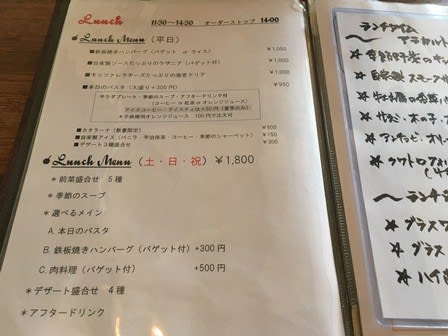 Lunch 11:30-14:30 オーダーストップ 14:00
Lunch Menu (平日)
■鉄板焼きハンバーグ（バゲット or ライス） ¥1,050
■自家製ソースたっぷりのラザニア（バゲット付） ¥1,000
■モッツァレラチーズたっぷりの海老ドリア
■本日のパスタ（大盛り＋100円） ¥950
サラダプレート・季節のスープ・アフタードリンク付
（コーヒー or 紅茶 or オレンジジュース）
アイスコーヒー・アイスティは＋50円
＊お子様用オレンジジュース 100円で注文可
■カタラーナ（数量限定） ¥500
■自家製アイス（バニラ・宇治抹茶・コーヒー・季節のシャーベット） ¥150
■デザート3種盛合せ 350
Lunch Menu (土・日・祝) ¥1,800
＊前菜盛合せ 5種
＊季節のスープ
＊選べるメイン
A. 本日のパスタ
B. 鉄板焼きハンバーグ（バゲット付）+300円
C. 肉料理（バゲット付） +500円
＊デザート盛合せ 4種
＊アフタードリンク
ランチタイム
グラスワ
グラス
ハイ